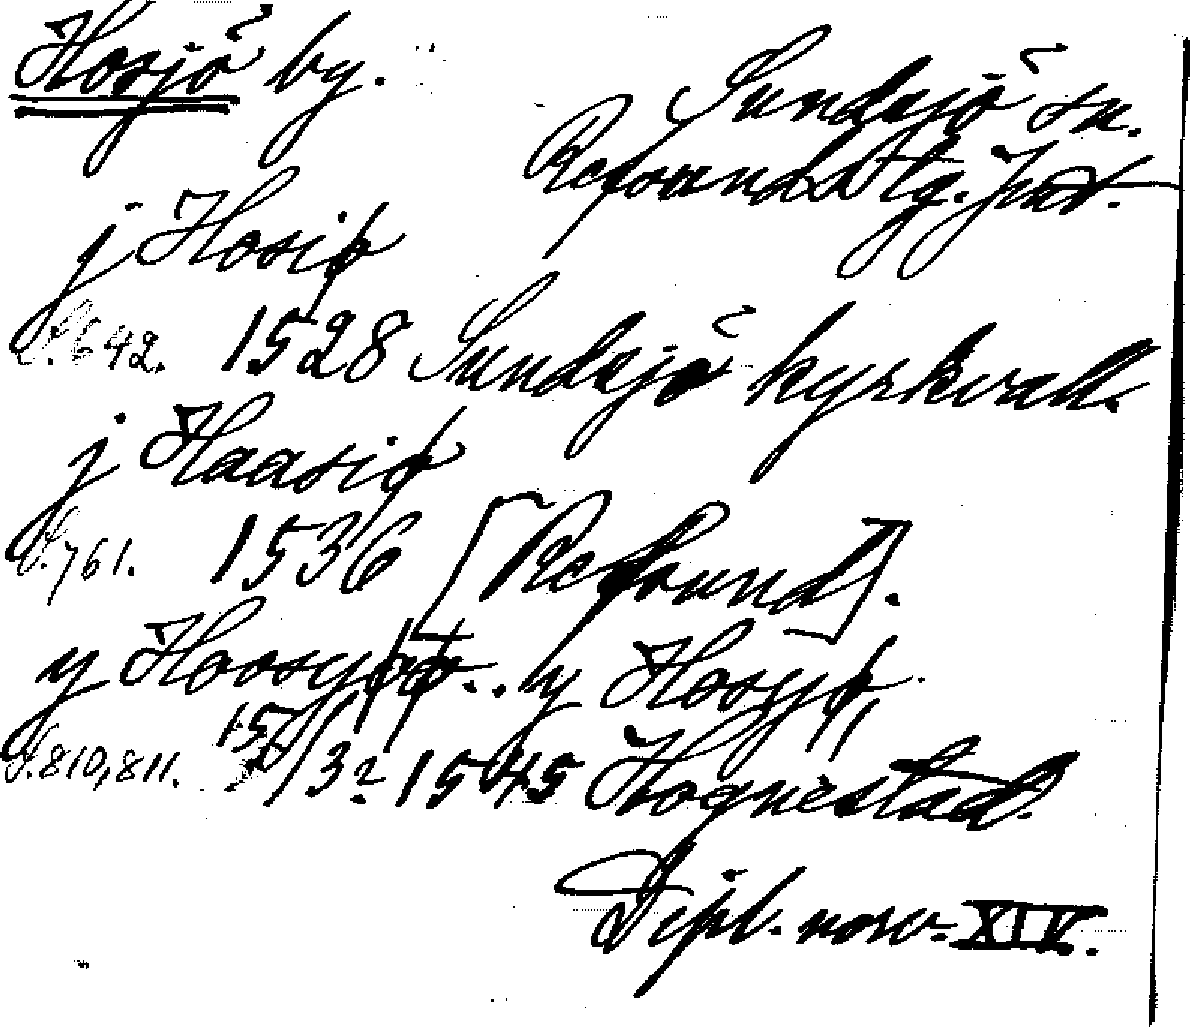 Hosjö by.
Sundsjö sn.
Refsunds tlg. Jmt.
j Hosiø
S. 642. 1528 Sundsjö kyrkvall.
j Haasiø
S. 761. 1536 [Refsund].
y Hoosyøø.. y Hosyø,
S. 810, 811. 15/3 1545 Hognestad.
Dipl. norv. XIV.